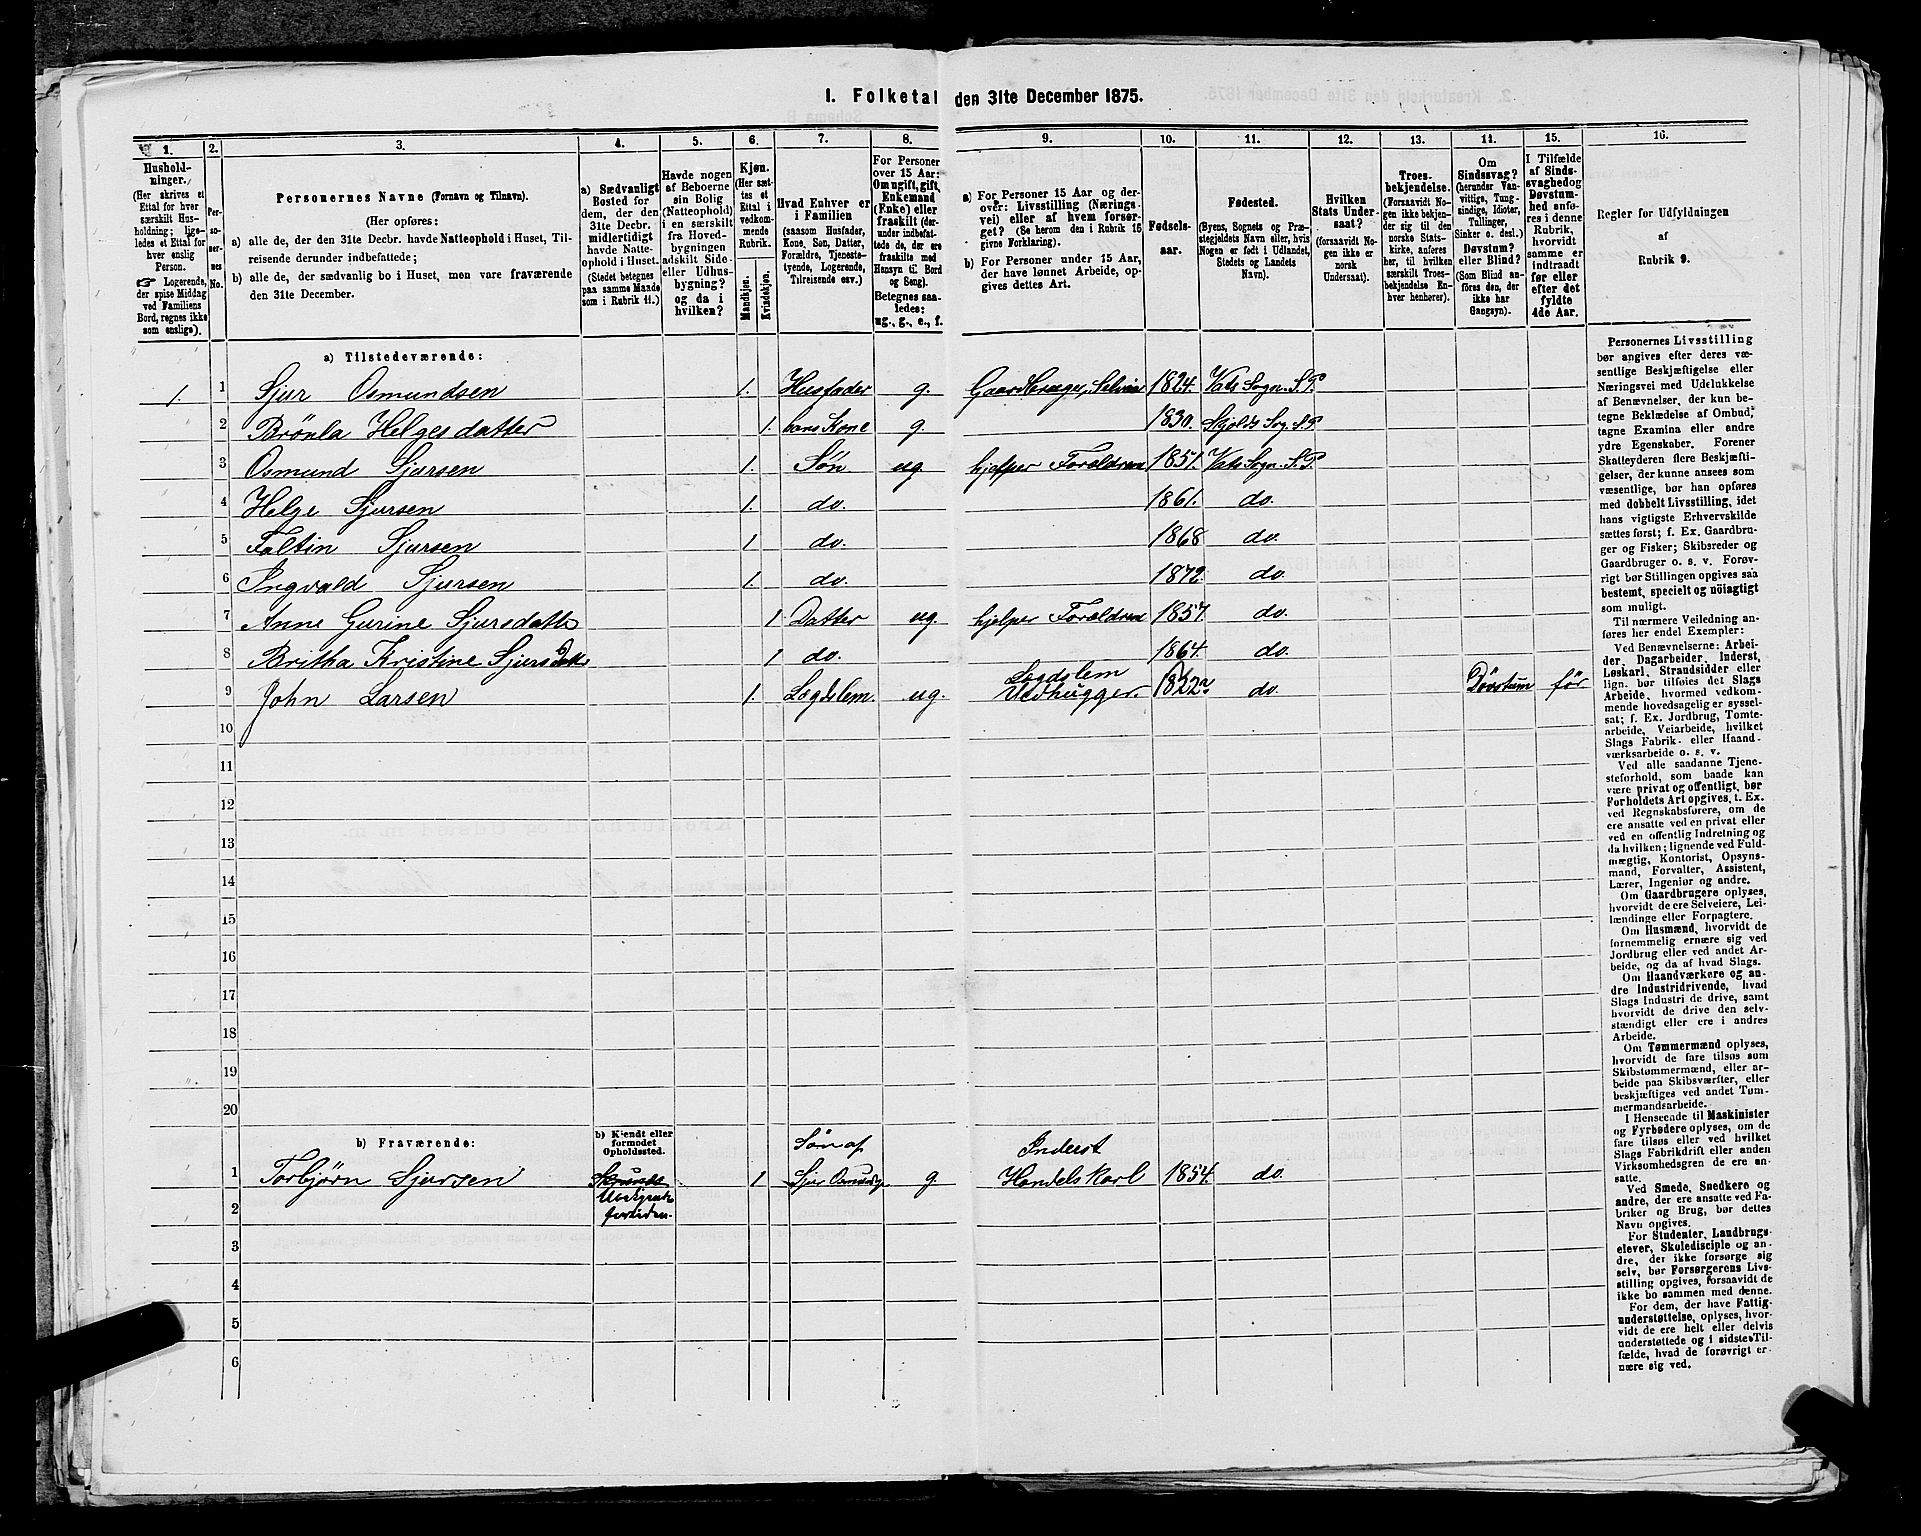 1. Folketal den 31te December 1875.
1. 2. 3. 4. 5. 6. 7. 8. 9. 10. 11. 12. 13. 14. 15. 16.
Hushold-
ninger.
(Her skrives et
Ettal for hver
særskilt Hus-
holdning; lige-
ledes et Ettal for
hver enslig
Person.
☞ Logerende,
der spise Middag
ved Familiens
Bord, regnes ikke
som enslige).
Per-
so-
ner-
nes
No.
Personernes Navne (Fornavn og Tilnavn).
(Her opføres:
a) alle de, der den 31te Decbr. havde Natteophold i Huset, Til-
reisende derunder indbefattede;
b) alle de, der sædvanlig bo i Huset, men vare fraværende
den 31te December.
a) Sædvanligt
Bosted for
dem, der den
31te Decbr.
midlertidigt
havde Natte-
ophold i Huset.
(Stedet betegnes
paa samme Maade
som i Rubrik 11.)
Havde nogen
af Beboerne
sin Bolig
(Natteophold)
i en særskilt
fra Hoved-
bygningen
adskilt Side-
eller Udhus-
bygning?
og da i
hvilken?
Kjøn.
(Her sæt-
tes et
Ettal i
vedkom-
mende
Rubrik.
Mandkjøn.
Kvindekjøn.
Hvad Enhver er
i Familien
(saasom Husfader,
Kone, Søn, Datter,
Forældre, Tjeneste-
tyende, Logerende,
Tilreisende osv.)
For Personer
over 15 Aar:
Om ugift, gift,
Enkemand
(Enke) eller
fraskilt (der-
under indbefat-
tede de, der ere
fraskilte med
Hensyn til Bord
og Seng).
Betegnes saa-
ledes:
ug., g., e., f.
a) For Personer 15 Aar og der-
over: Livsstilling (Nærings-
vei) eller af hvem forsør-
get? (Se herom den i Rubrik 16
givne Forklaring).
b) For Personer under 15 Aar,
der have lønnet Arbeide, op-
gives dettes Art.
Fødsels-
aar.
Fødested.
(Byens, Sognets og Præ-
stegjeldets Navn eller, hvis
Nogen er født i Udlandet,
Stedets og Landets
Navn).
Hvilken
Stats Under-
saat?
(forsaavidt No-
gen ikke er
norsk
Undersaat).
Troes-
bekjendelse.
(Forsaavidt No-
gen ikke bekjen-
der sig til den
norske Stats-
kirke, anføres
her, til hvilken
særskilt Troes-
bekjendelse En-
hver henhører).
Om
Sindssvag?
(herunder Van-
vittige, Tung-
sindige, Idioter,
Tullinger,
Sinker o. desl.)
Døvstum?
eller Blind?
(Som Blind an-
føres den, der
ikke har
Gangsyn).
I Tilfælde
af Sinds-
svaghed og
Døvstum-
hed anfø-
res i denne
Rubrik,
hvorvidt
samme er
indtraadt
før eller
efter det
fyldte
4de Aar.
Regler for Udfyldningen
af
Rubrik 9.
a) Tilstedeværende:
1 1 Sjur Osmundsen 1. Husfader g. Gaardbruger, Selveier 1824. Vats Sogn. S.P.
2 Brönla Helgesdatter 1. hans Kone g. 1830. Skjolds Sog. S.P
3 Osmund Sjursen 1. Søn ug hjelper Forældrene 1851. Vats Sogn. S.P.
4 Helge Sjursen 1. do. 1861. do.
5 Faltin Sjursen 1 do. 1868 do.
6 Ingvald Sjursen 1. do. 1872. do.
7 Anne Gurine Sjursdatte 1 Datter ug. hjelper Forældrene 1857. do.
8 Britha Kristine Sjursdatte 1 do. 1864. do.
Lægdslem
9 John Larsen 1. Lægdslem. ug. Vedhugger. 1822 do. Døvstum før
10
11
12
13
14
15
16
17
18
19
20
b) Fraværende:
b) Kjendt eller
formodet
Opholdssted.
Søn af Inderst
1 Torbjørn Sjursen 1 Sjur Osmundsen g. Handelskarl 1854. do.
2
3
4
5
6
Personernes Livsstilling
bør angives efter deres væ-
sentlige Beskjæftigelse eller
Næringsvei med Udelukkelse
af Benævnelser, der kun be-
tegne Beklædelse af Ombud,
tagne Examina eller andre
ydre Egenskaber. Forener
Skatteyderen flere Beskjæfti-
gelser, der kunne ansees som
væsentlige, bør han opføres
med dobbelt Livsstilling, idet
hans vigtigste Erhvervskilde
sættes først; f. Ex. Gaardbru-
ger og Fisker; Skibsreder og
Gaardbruger o. s. v. Forøv-
rigt bør Stillingen opgives saa
bestemt, specielt og nöiagtigt
som muligt.
Til nærmere Veiledning an-
føres her endel Exempler:
Ved Benævnelserne: Arbei-
der, Dagarbeider, Inderst,
Løskarl, Strandsidder eller
lign. bør tilføies det Slags
Arbeide, hvormed vedkom-
mende hovedsagelig er syssel-
sat; f. Ex. Jordbrug, Tomte-
arbeide, Veiarbeide, hvilket
Slags Fabrik- eller Haand-
værksarbeide o. s. v.
Ved alle saadanne Tjene-
steforhold, som baade kan
være privat og offentligt, bør
Forholdets Art opgives, t. Ex.
ved Regnskabsførere, om de
ere ansatte ved en privat eller
ved en offentlig Indretning og
da hvilken; lignende ved Fuld-
mægtig, Kontorist, Opsyns-
mand, Forvalter, Assistent,
Lærer, Ingeniør og andre.
Om Gaardbrugere oplyses,
hvorvidt de ere Selveiere, Lei-
lændinge eller Forpagtere.
Om Husmænd, hvorvidt de
fornemmelig ernære sig ved
Jordbrug eller ved andet Ar-
beide, og da af hvad Slags.
Om Haandværkere og an-
dre Industridrivende, hvad
Slags Industri de drive, samt
hvorvidt de drive den selv-
stændigt eller ere i andres
Arbeide.
Om Tømmermænd oplyses,
hvorvidt de fare tilsøs som
Skibstømmermænd, eller ar-
beide paa Skibsværfter, eller
beskjæftiges ved andet Tøm-
mermandsarbeide.
I Henseende til Maskinister
og Fyrbødere oplyses, om de
fare tilsøs eller ved hvilket
Slags Fabrikdrift eller anden
Virksomhedsgren de ere an-
satte.
Ved Smede, Snedkere og
andre, der ere ansatte ved Fa-
briker og Brug, bør dettes
Navn opgives.
For Studenter, Landbrugs-
elever, Skoledisciple og an-
dre, der ikke forsørge sig
selv, bør Forsørgerens Livs-
stilling opgives, forsaavidt de
ikke bo sammen med denne.
For dem, der have Fattig-
understøttelse, oplyses, hvor-
vidt de ere helt eller delvis
understøttede og i sidste Til-
fælde, hvad de forøvrigt er-
nære sig ved.